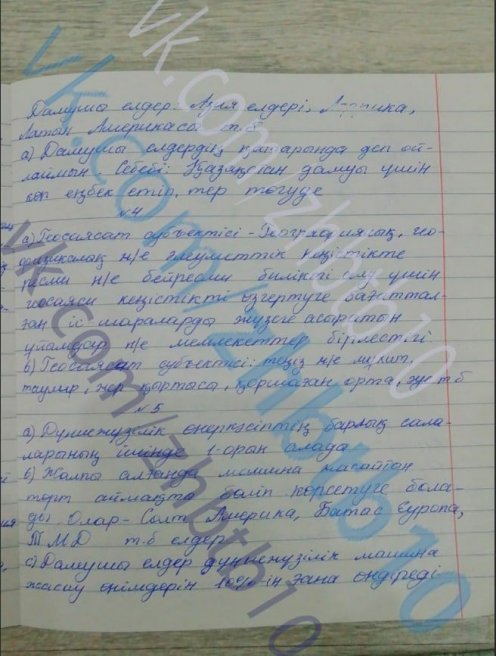 Дамушы елдер - Азия елдері, Африка,
Латын Америкасы т.б
а) Дамушы елдердің қатарында деп ой-
лаймын Себебі: Қазақстан дамуы үшін
көп еңбек етіп, тер төгуде
№4
а) Геосаясат субъектісі - Географиялық, гео-
физикалық н/е әлеуметтік кеңістікте
ресми н/е бейресми билікті алу үшін
геосаяси кеңістікті өзгертуге бағыттал-
ған іс шараларды жүзеге асыратын
ұйымдар н/е мемлекеттер бірлестігі
в) Геосаясат субъектісі: теңіз н/е мұхит,
таулар, жер қыртысы, қоршаған орта, әуе т.б
№5
а) Дүниежүзілік өнеркәсіптің барлық сала-
ларының ішінде 1-орын алады
в) Жалпы алғанда машина жасайтын
төрт аймақты бөліп көрсетуге бола-
ды Олар - Солт Америка, Батыс Еуропа,
ТМД т.б елдер
с) Дамушы елдер дүниежүзілік машина
жасау өнімдерін 10%-ін ғана өндіреді
vk.com/zhbtb10
vk.com/zhbtb10
vk.com/zhbtb10